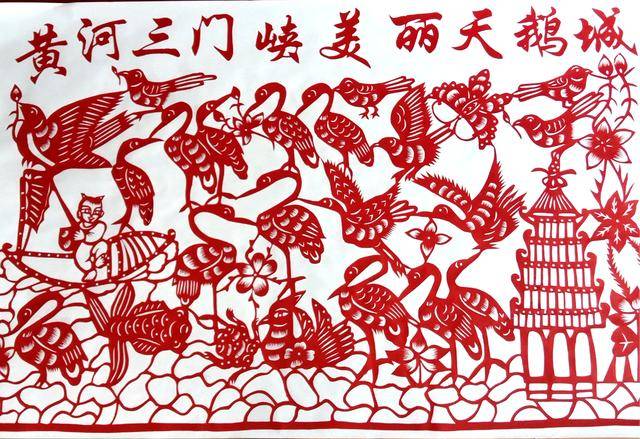 黄河三门峡美丽天鹅城